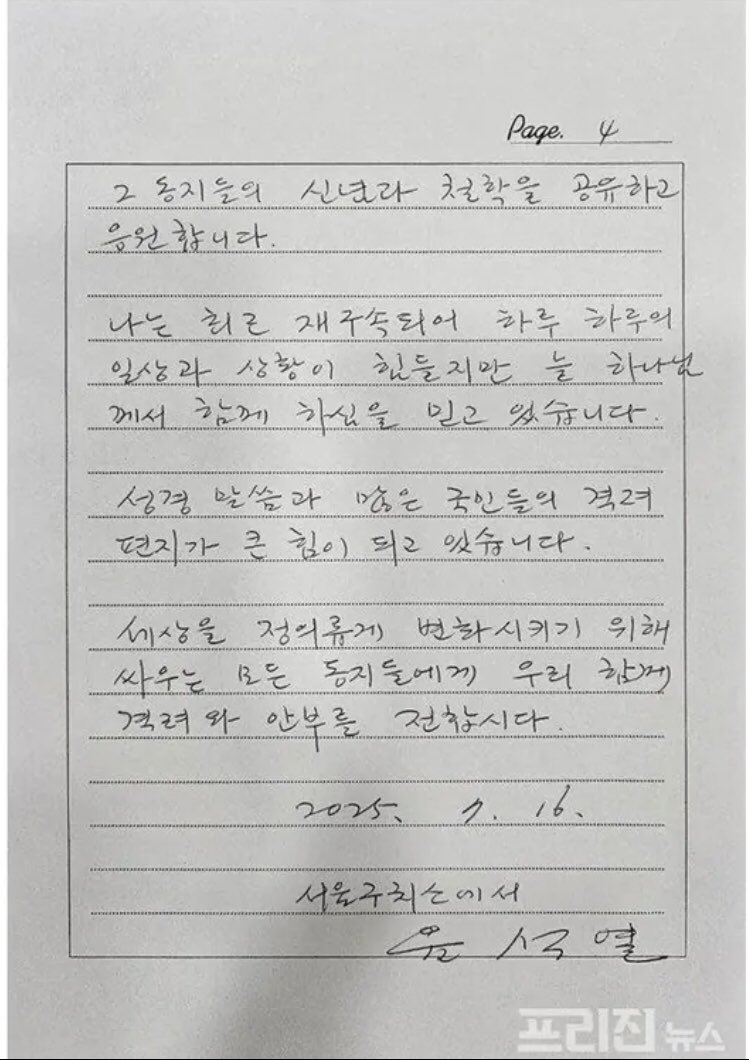 Page. 4
그 동지들의 신념과 철학을 공유하고
응원합니다.
나는 최근 재구속되어 하루 하루의
일상과 상황이 힘들지만 늘 하나님
께서 함께 하심을 믿고 있습니다.
성경 말씀과 많은 국민들의 격려
편지가 큰 힘이 되고 있습니다.
세상을 정의롭게 변화시키기 위해
싸우는 모든 동지들에게 우리 함께
격려와 안부를 전합시다.
2025. 7. 16.
서울구치소에서
윤석열
프리진 뉴스